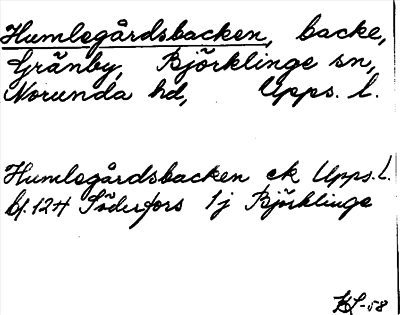 Humlegårdsbacken, backe,
Gränby, Björklinge sn,
Norunda hd, Upps. l.
Humlegårdsbacken ek Upps. l.
bl. 124 Söderfors 1j Björklinge
-58